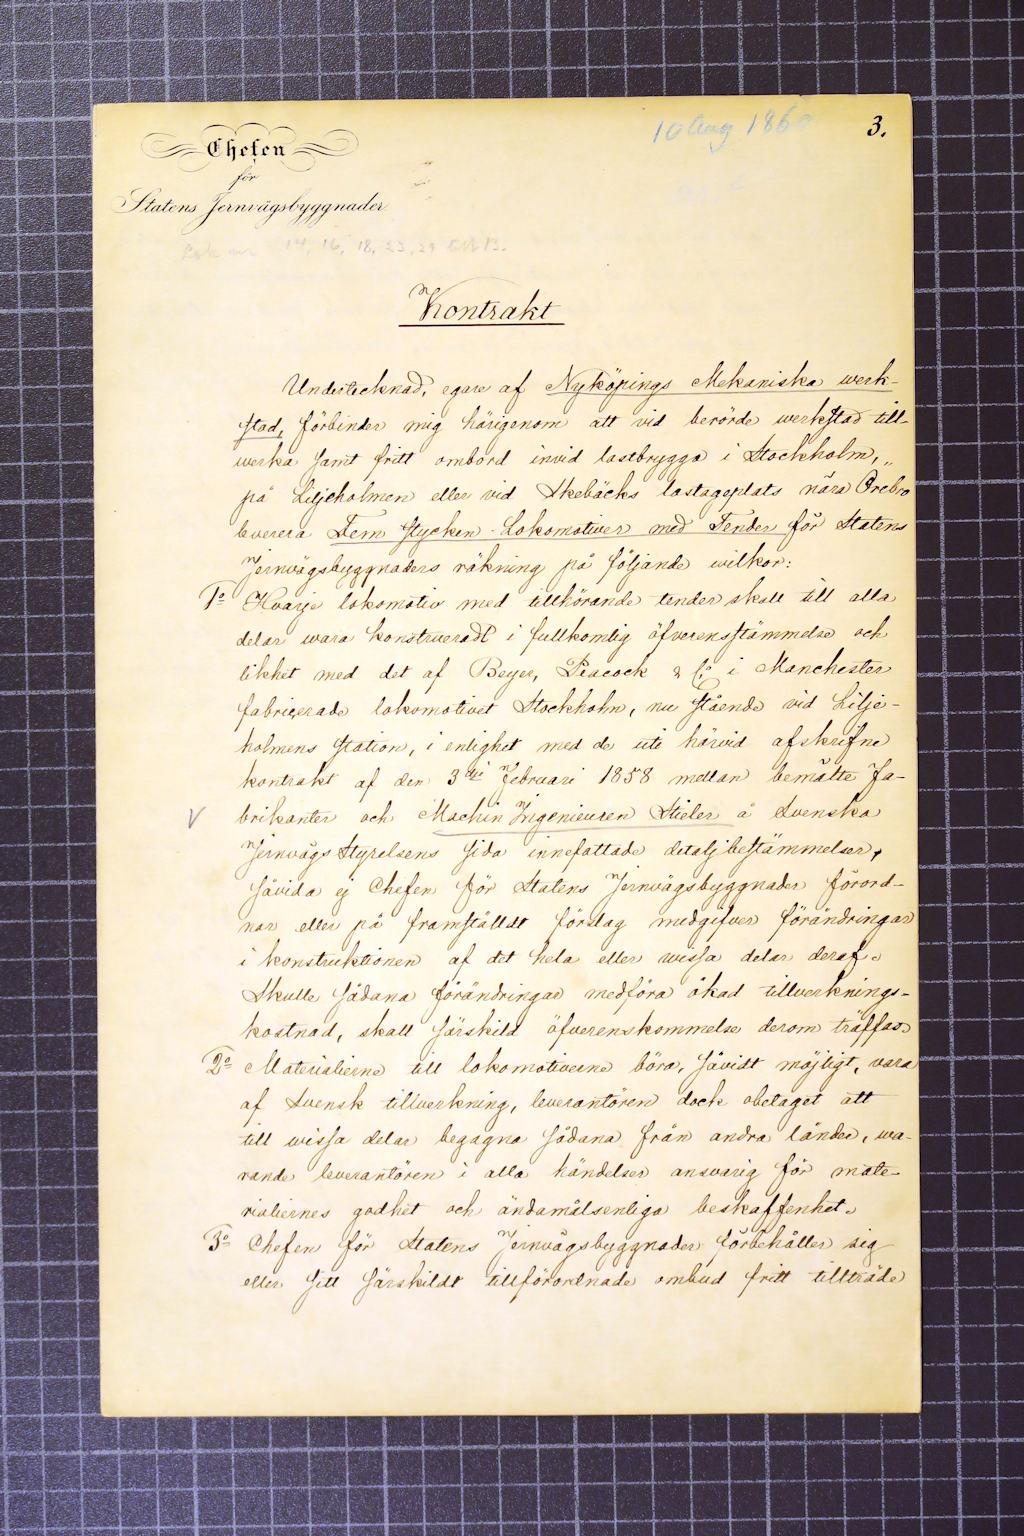 10 Aug 1860
3.
Chefen
för
Statens Jernvägsbyggnader
Lok nr 14, 16, 18, 23, 29 Litt B.
Kontrakt
Undertecknad, egare af Nyköpings Mekaniska werk-
stad, förbinder mig härigenom att vid berörde werkstad till-
werka samt fritt ombord invid lastbrygga i Stockholm,
på Liljeholmen eller vid Skebäcks lastageplats nära Örebro
leverera Fem stycken Lokomotiver med Tender för Statens
Jernvägsbyggnaders räkning på följande wilkor:
1o Hvarje lokomotiv med tillhörande tender skall till alla
delar wara konstrueradt i fullkomlig öfverensstämmelse och
likhet med det af Beyer, Peacock & Co i Manchester
fabricerade lokomotivet Stockholm, nu stående vid Lilje-
holmens station, i enlighet med de uti härvid afskrifne
kontrakt af den 3die Februari 1858 mellan bemälte Fa-
brikanter och Machin Ingenieuren Stieler å Svenska
Jernvägs Styrelsens sida innefattade detaljbestämmelser,
såvida ej Chefen för Statens Jernvägsbyggnader förord-
nar eller på framställdt förslag medgifver förändringar
i konstruktionen af det hela eller wissa delar deraf.
Skulle sådana förändringar medföra ökad tillverknings-
kostnad, skall särskild öfverenskommelse derom träffas.
2o Materialierne till lokomotiverne böra, såvidt möjligt, vara
af Svensk tillverkning, leverantören dock obetaget att
till wissa delar begagna sådana från andra länder, wa-
rande leverantören i alla händelser answarig för mate-
rialiernes godhet och ändamålsenliga beskaffenhet.
3o Chefen för Statens Jernvägsbyggnader förbehåller sig
eller sitt särskildt tillförordnade ombud fritt tillträde